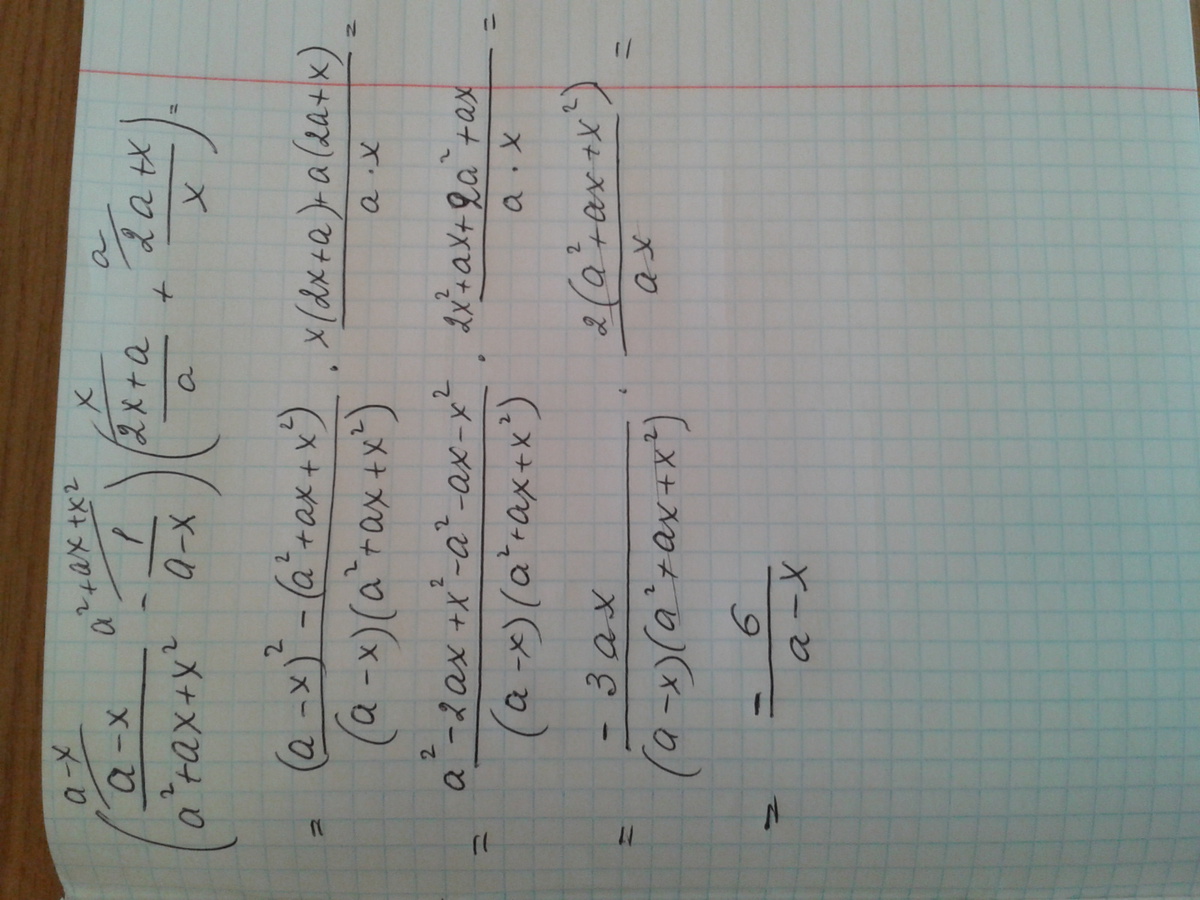 ( (a-x)/(a²+ax+x²) ⟋a-x - 1/(a-x) ⟋a²+ax+x² ) ( (2x+a)/a ⟋x + (2a+x)/x ⟋a ) =
= ((a-x)² - (a²+ax+x²))/((a-x)(a²+ax+x²)) · (x(2x+a)+a(2a+x))/(a·x) =
= (a²-2ax+x²-a²-ax-x²)/((a-x)(a²+ax+x²)) · (2x²+ax+2a²+ax)/(a·x) =
= (-3ax)/((a-x)(a²+ax+x²)) · (2(a²+ax+x²))/(ax) =
= - 6/(a-x)